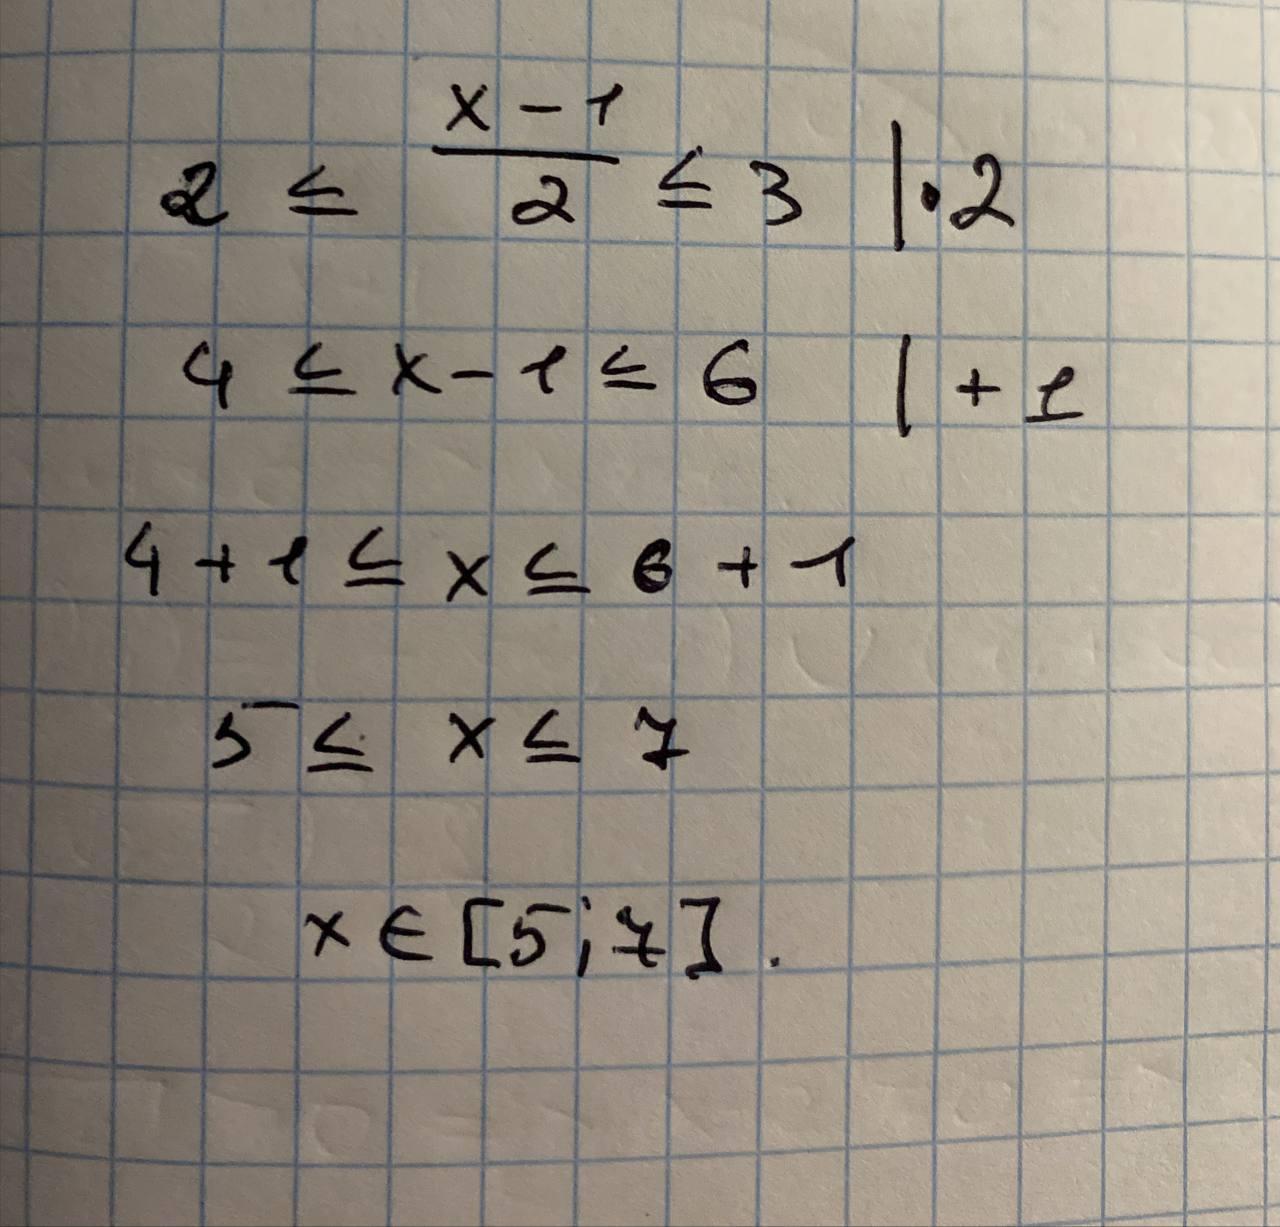 2 ≤ (x - 1)/2 ≤ 3 | · 2
4 ≤ x - 1 ≤ 6 | + 1
4 + 1 ≤ x ≤ 6 + 1
5 ≤ x ≤ 7
x ∈ [5; 7].